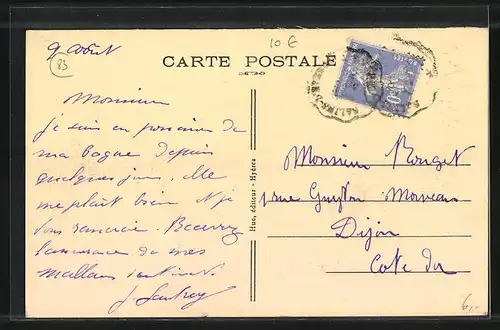 9 Août
10 €
83
CARTE POSTALE
Monsieur
je suis en possession de
ma bague depuis
quelques jours, elle
me plaît bien & je
vous remercie. Recevez
l'assurance de mes
meilleurs sentiments
Hue, éditeur - Hyères
Monsieur Rouget
1 rue Guyton Morveau
Dijon
Cote d'or
6,-